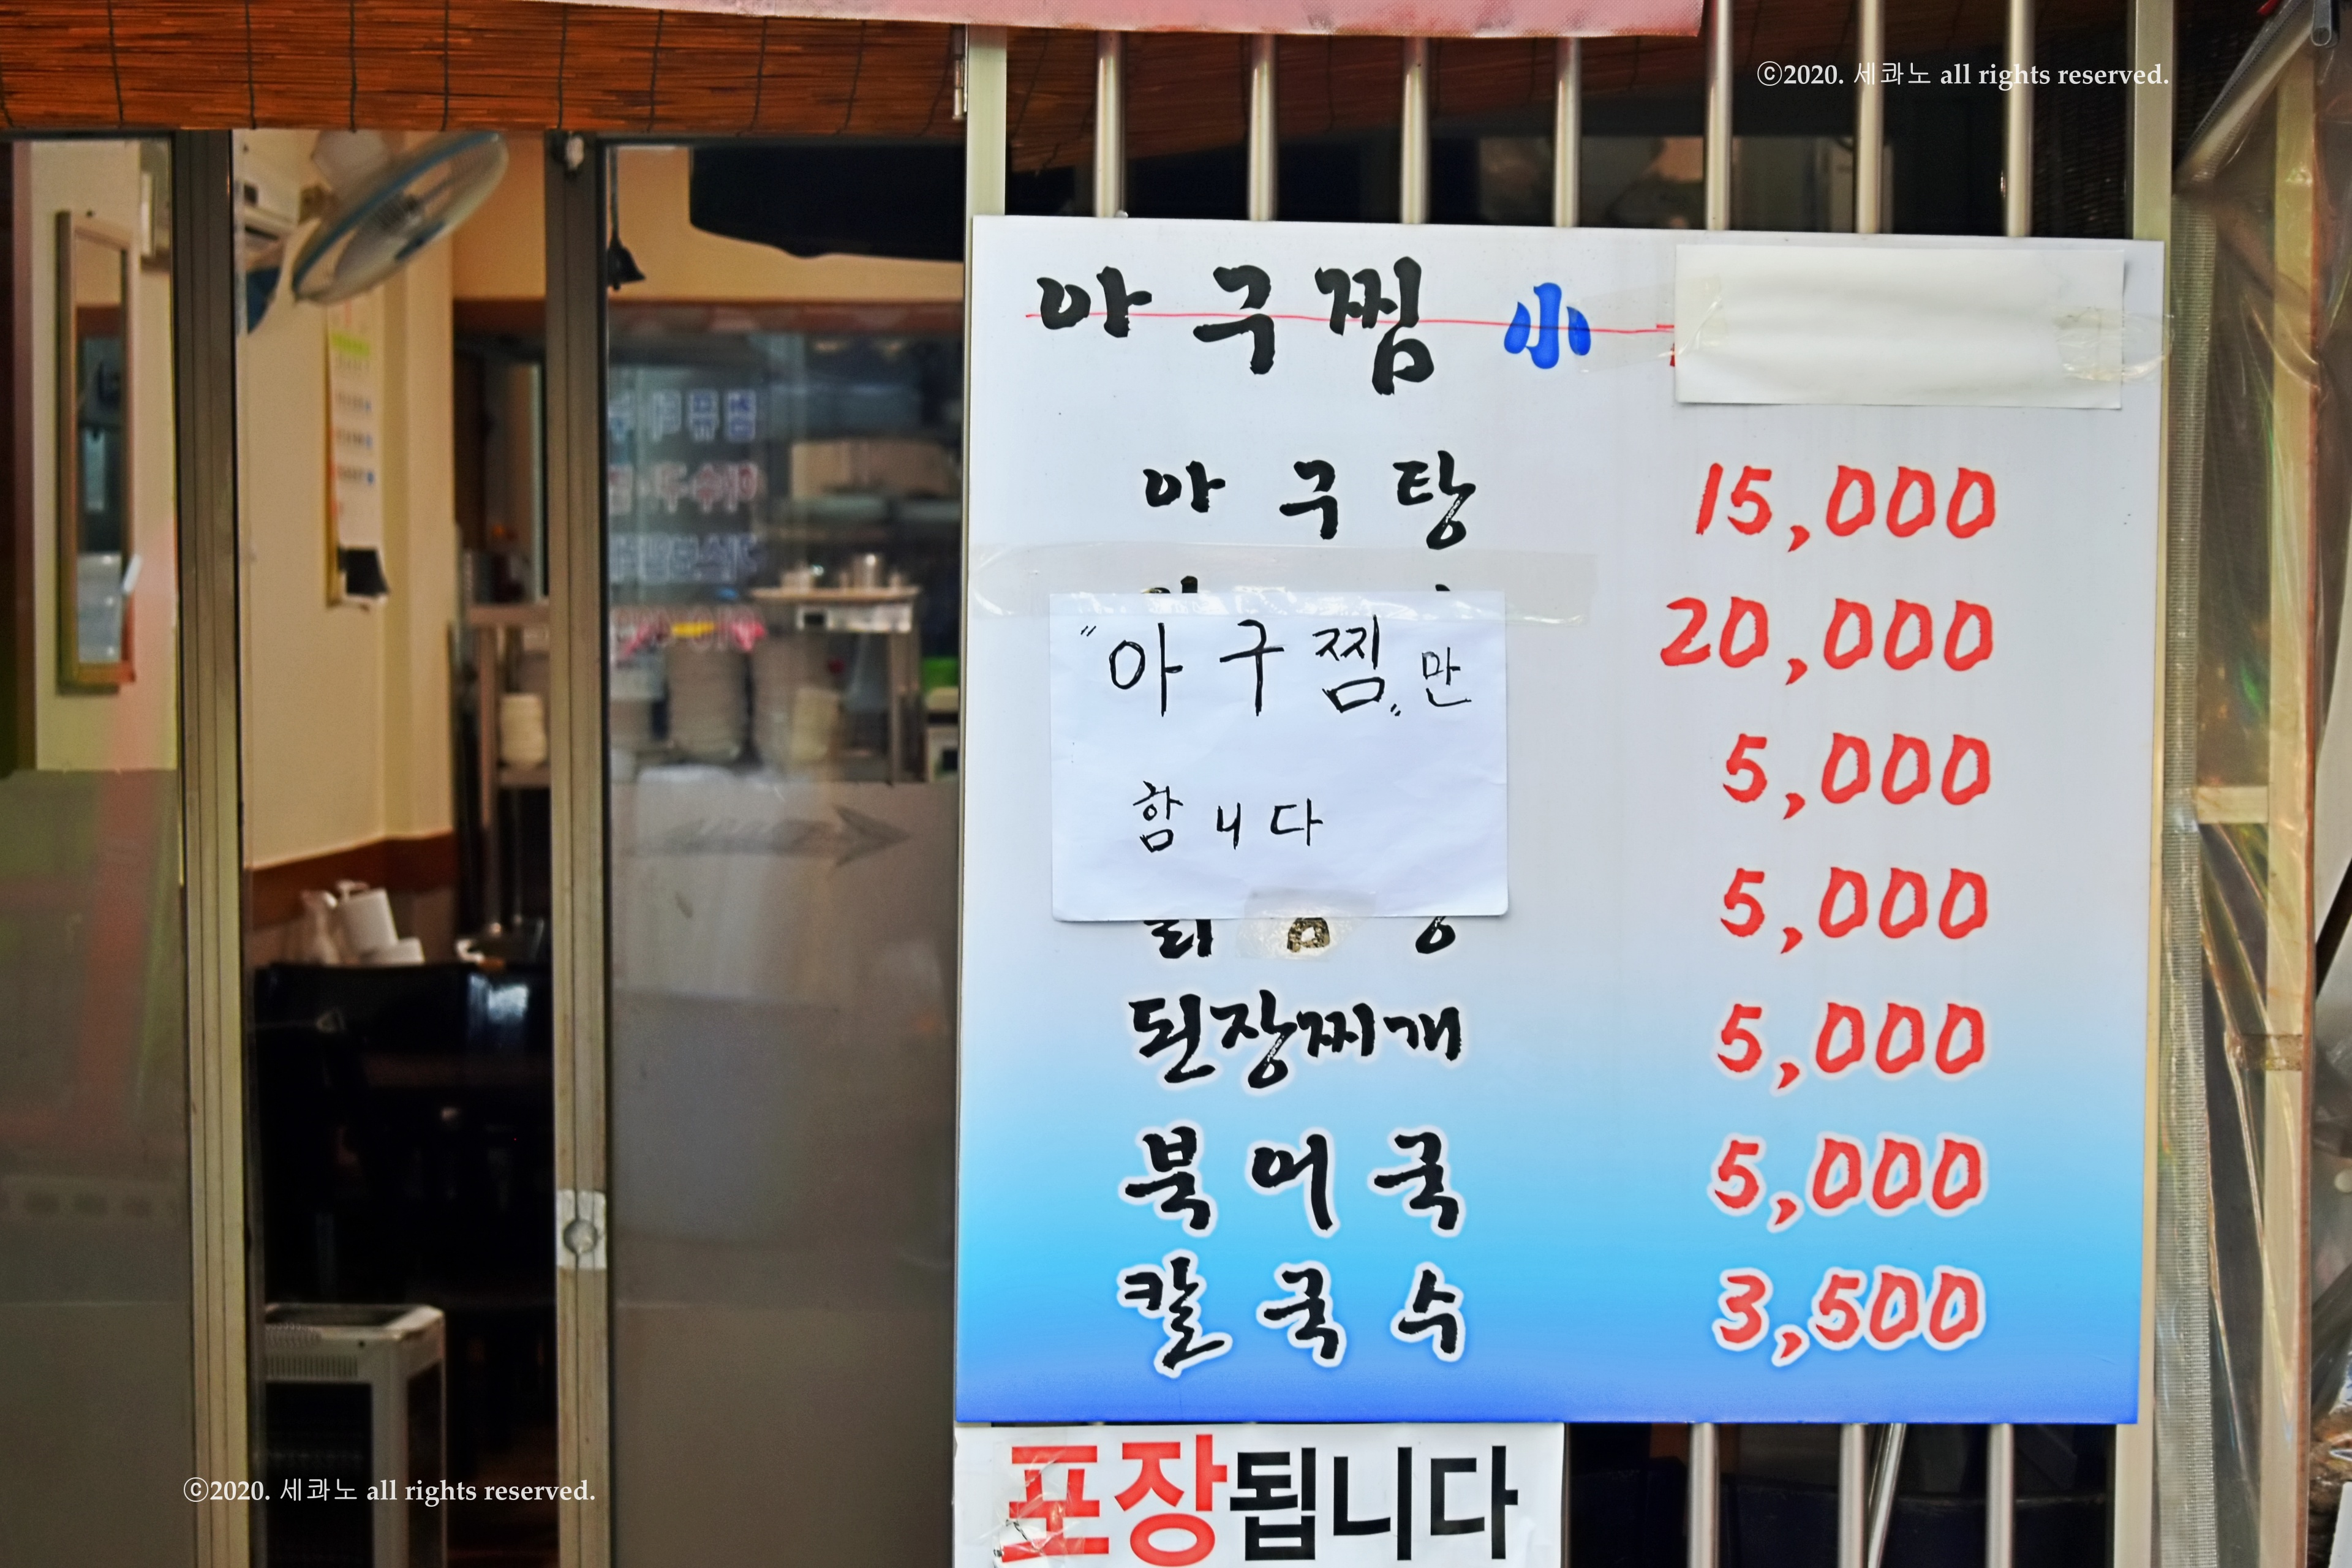 ⓒ2020. 세콰노 all rights reserved.
아구찜 小
아구탕 15,000
20,000
"아구찜"만
함니다
5,000
5,000
된장찌개 5,000
북어국 5,000
칼국수 3,500
포장됩니다
ⓒ2020. 세콰노 all rights reserved.